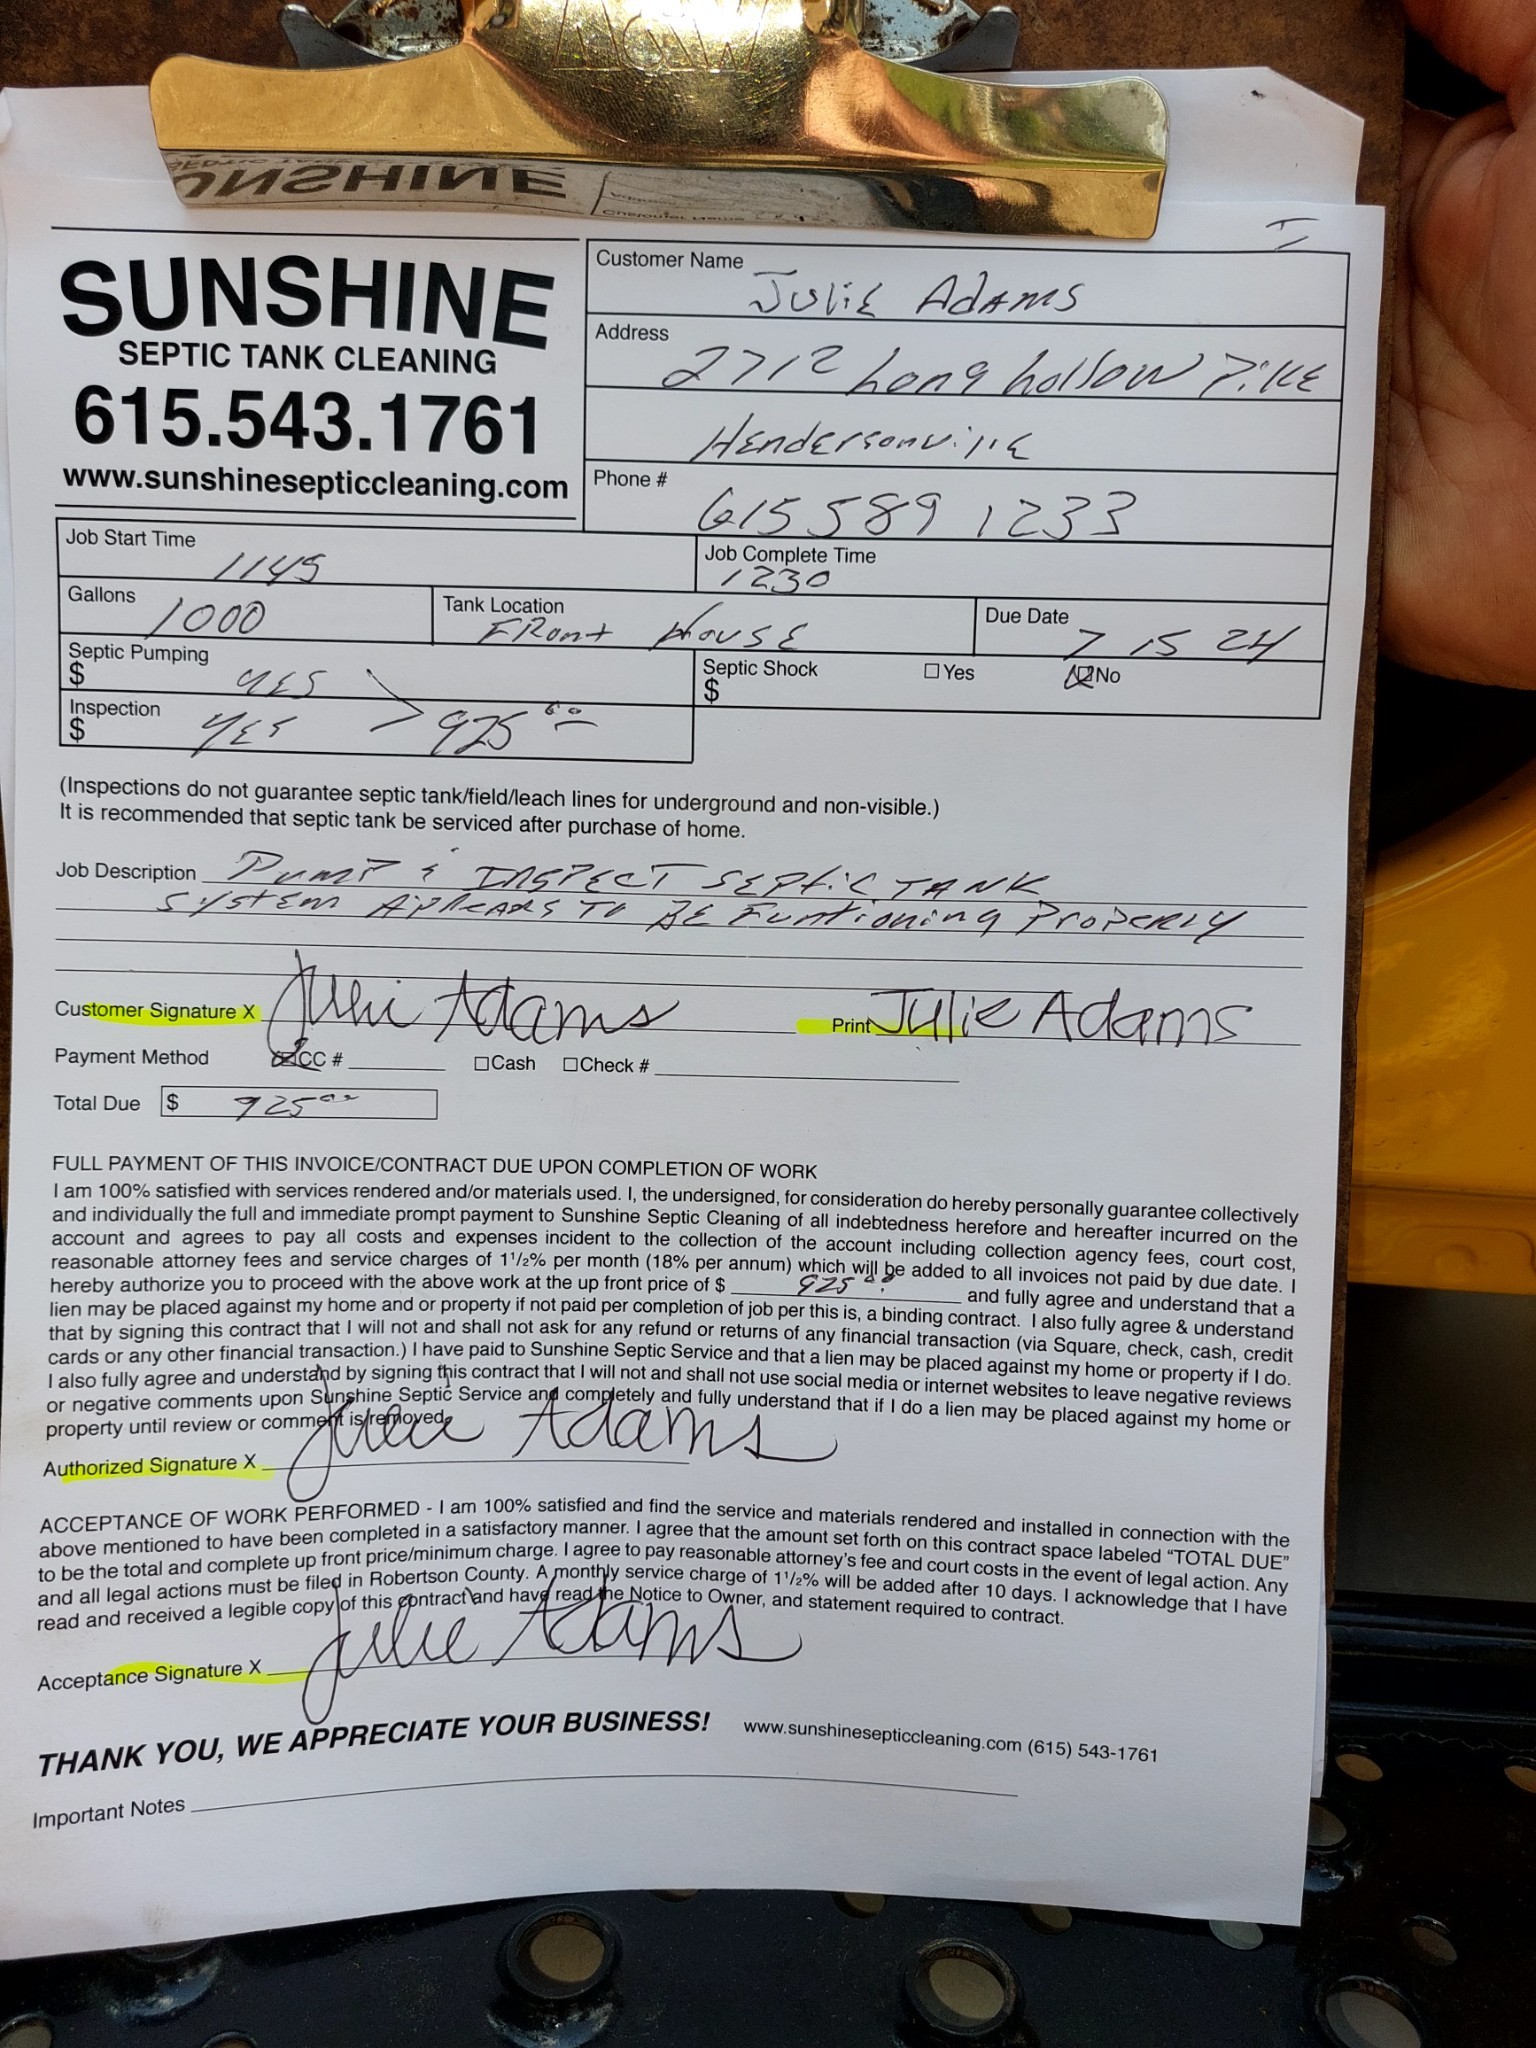 AGW
SUNSHINE
SUNSHINE
SEPTIC TANK CLEANING
615.543.1761
www.sunshinesepticcleaning.com
Customer Name Julie Adams
Address 2712 Long hollow Pike
Hendersonville
Phone # 615 589 1233
Job Start Time 1145
Job Complete Time 1230
Gallons 1000
Tank Location FRont House
Due Date 7 15 24
Septic Pumping $ YES
Septic Shock $ Yes No
Inspection $ YES 925 00
(Inspections do not guarantee septic tank/field/leach lines for underground and non-visible.)
It is recommended that septic tank be serviced after purchase of home.
Job Description Pump & INSPECT SEPtiC TANK
SYSTEM APPEARS TO BE Funtioning PropERLY
Customer Signature X Julie Adams Print Julie Adams
Payment Method CC # Cash Check #
Total Due $ 925 00
FULL PAYMENT OF THIS INVOICE/CONTRACT DUE UPON COMPLETION OF WORK
I am 100% satisfied with services rendered and/or materials used. I, the undersigned, for consideration do hereby personally guarantee collectively
and individually the full and immediate prompt payment to Sunshine Septic Cleaning of all indebtedness herefore and hereafter incurred on the
account and agrees to pay all costs and expenses incident to the collection of the account including collection agency fees, court cost,
reasonable attorney fees and service charges of 1 1/2% per month (18% per annum) which will be added to all invoices not paid by due date. I
hereby authorize you to proceed with the above work at the up front price of $ 925 00 and fully agree and understand that a
lien may be placed against my home and or property if not paid per completion of job per this is, a binding contract. I also fully agree & understand
that by signing this contract that I will not and shall not ask for any refund or returns of any financial transaction (via Square, check, cash, credit
cards or any other financial transaction.) I have paid to Sunshine Septic Service and that a lien may be placed against my home or property if I do.
I also fully agree and understand by signing this contract that I will not and shall not use social media or internet websites to leave negative reviews
or negative comments upon Sunshine Septic Service and completely and fully understand that if I do a lien may be placed against my home or
property until review or comment is removed.
Authorized Signature X Julie Adams
ACCEPTANCE OF WORK PERFORMED - I am 100% satisfied and find the service and materials rendered and installed in connection with the
above mentioned to have been completed in a satisfactory manner. I agree that the amount set forth on this contract space labeled “TOTAL DUE”
to be the total and complete up front price/minimum charge. I agree to pay reasonable attorney's fee and court costs in the event of legal action. Any
and all legal actions must be filed in Robertson County. A monthly service charge of 1 1/2% will be added after 10 days. I acknowledge that I have
read and received a legible copy of this contract and have read the Notice to Owner, and statement required to contract.
Acceptance Signature X Julie Adams
THANK YOU, WE APPRECIATE YOUR BUSINESS! www.sunshinesepticcleaning.com (615) 543-1761
Important Notes